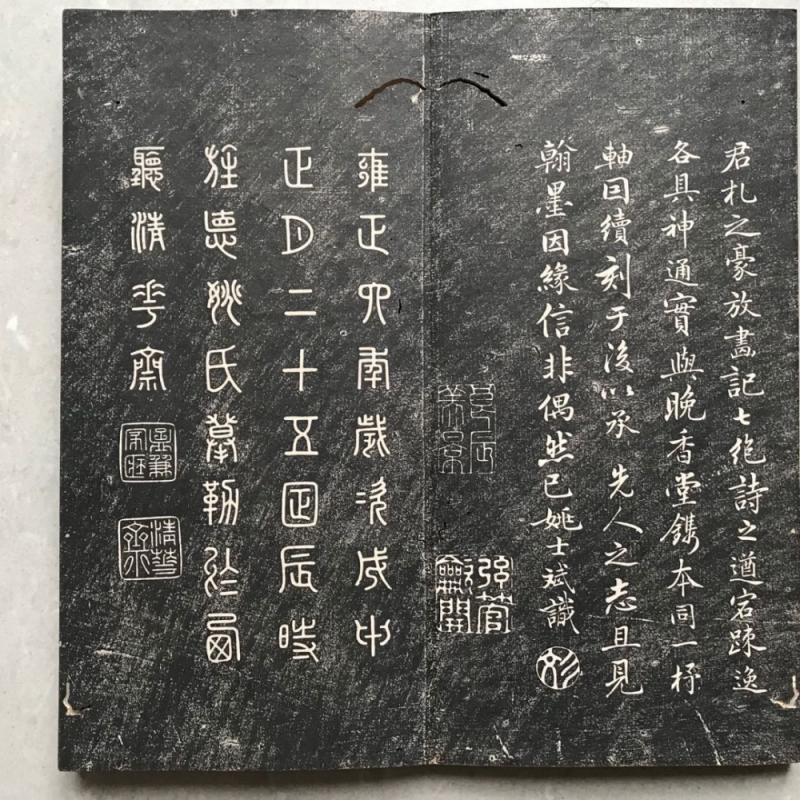 君札之豪放畫記七絕詩之遒宕疎逸
各具神通實與晚香堂鐫本同一杼
軸囙續刻于後以承先人之志且見
翰墨因緣信非偶然已姚士斌識
良辰美景
雍正六年歲次戊申
正月二十五日辰時
旌德姚氏摹勒於
聽華齋